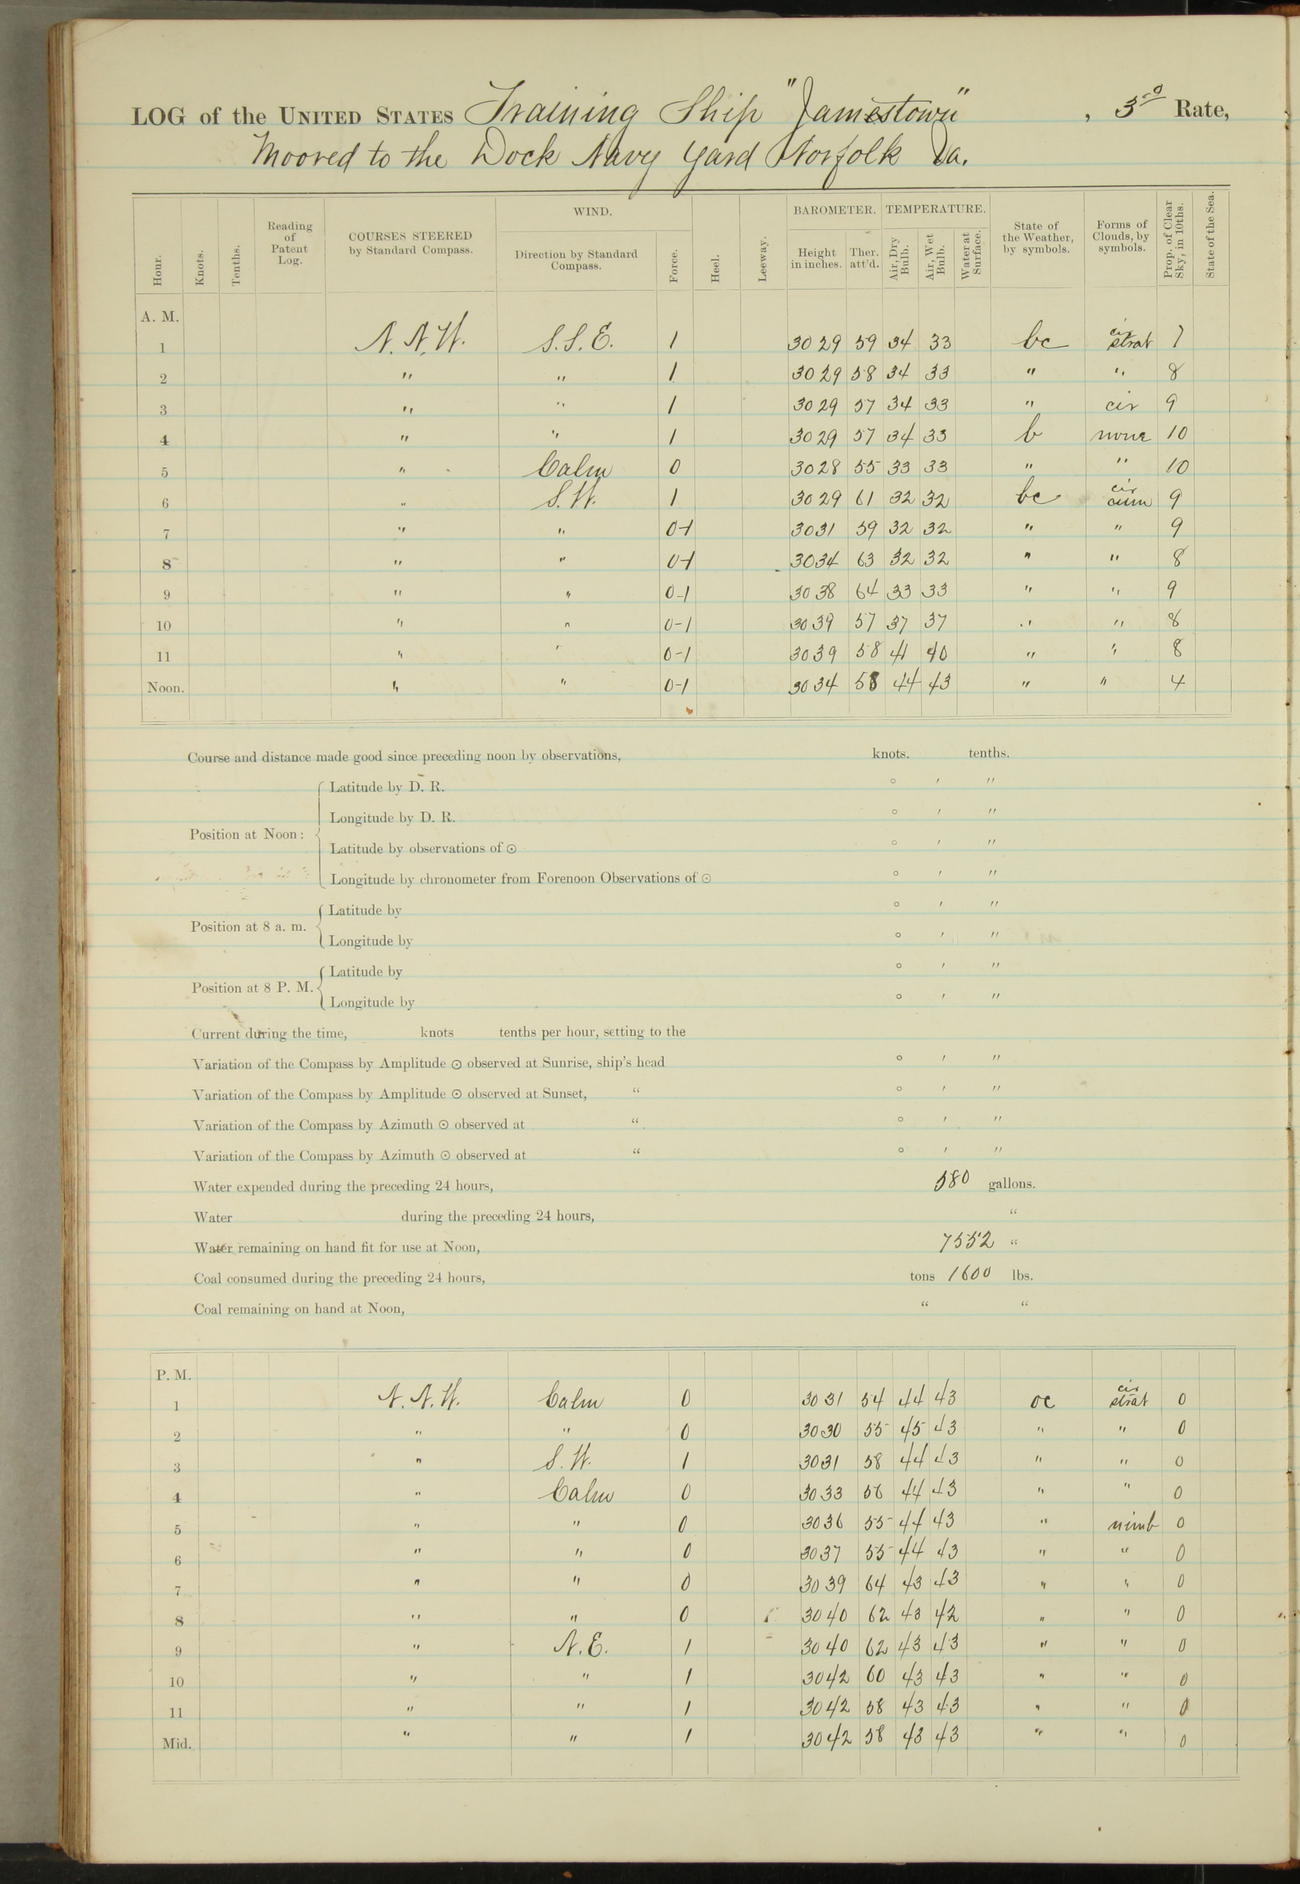 LOG of the UNITED STATES Training Ship "Jamestown", 3rd Rate,
Moored to the Dock Navy Yard Norfolk Va.
WIND. BAROMETER. TEMPERATURE.
Hour. Knots. Tenths. Reading of Patent Log. COURSES STEERED by Standard Compass. Direction by Standard Compass. Force. Heel. Leeway. Height in inches. Ther. att'd. Air, Dry Bulb. Air, Wet Bulb. Water at Surface. State of the Weather, by symbols. Forms of Clouds, by symbols. Prop. of Clear Sky, in 10ths. State of the Sea.
A. M.
1 N.N.W. S.S.E. 1 30 29 59 34 33 bc cir strat 7
2 " " 1 30 29 58 34 33 " " 8
3 " " 1 30 29 57 34 33 " cir 9
4 " " 1 30 29 57 34 33 b none 10
5 " Calm 0 30 28 55 33 33 " " 10
6 " S.W. 1 30 29 61 32 32 bc cir cum 9
7 " " 0-1 30 31 59 32 32 " " 9
8 " " 0-1 30 34 63 32 32 " " 8
9 " " 0-1 30 38 64 33 33 " " 9
10 " " 0-1 30 39 57 37 37 " " 8
11 " " 0-1 30 39 58 41 40 " " 8
Noon. " " 0-1 30 34 58 44 43 " " 4
Course and distance made good since preceding noon by observations, knots. tenths.
Latitude by D. R. ° ′ ″
Longitude by D. R. ° ′ ″
Position at Noon:
Latitude by observations of ☉ ° ′ ″
Longitude by chronometer from Forenoon Observations of ☉ ° ′ ″
Latitude by ° ′ ″
Position at 8 a. m.
Longitude by ° ′ ″
Latitude by ° ′ ″
Position at 8 P. M.
Longitude by ° ′ ″
Current during the time, knots tenths per hour, setting to the
Variation of the Compass by Amplitude ☉ observed at Sunrise, ship's head ° ′ ″
Variation of the Compass by Amplitude ☉ observed at Sunset, " ° ′ ″
Variation of the Compass by Azimuth ☉ observed at " ° ′ ″
Variation of the Compass by Azimuth ☉ observed at " ° ′ ″
Water expended during the preceding 24 hours, 580 gallons.
Water during the preceding 24 hours, "
Water remaining on hand fit for use at Noon, 7552 "
Coal consumed during the preceding 24 hours, tons 1600 lbs.
Coal remaining on hand at Noon, " "
P. M.
1 N.N.W. Calm 0 30 31 54 44 43 oc cir strat 0
2 " " 0 30 30 55 45 43 " " 0
3 " S.W. 1 30 31 58 44 43 " " 0
4 " Calm 0 30 33 56 44 43 " " 0
5 " " 0 30 36 55 44 43 " nimb 0
6 " " 0 30 37 55 44 43 " " 0
7 " " 0 30 39 64 43 43 " " 0
8 " " 0 30 40 62 43 42 " " 0
9 " N.E. 1 30 40 62 43 43 " " 0
10 " " 1 30 42 60 43 43 " " 0
11 " " 1 30 42 58 43 43 " " 0
Mid. " " 1 30 42 58 43 43 " " 0